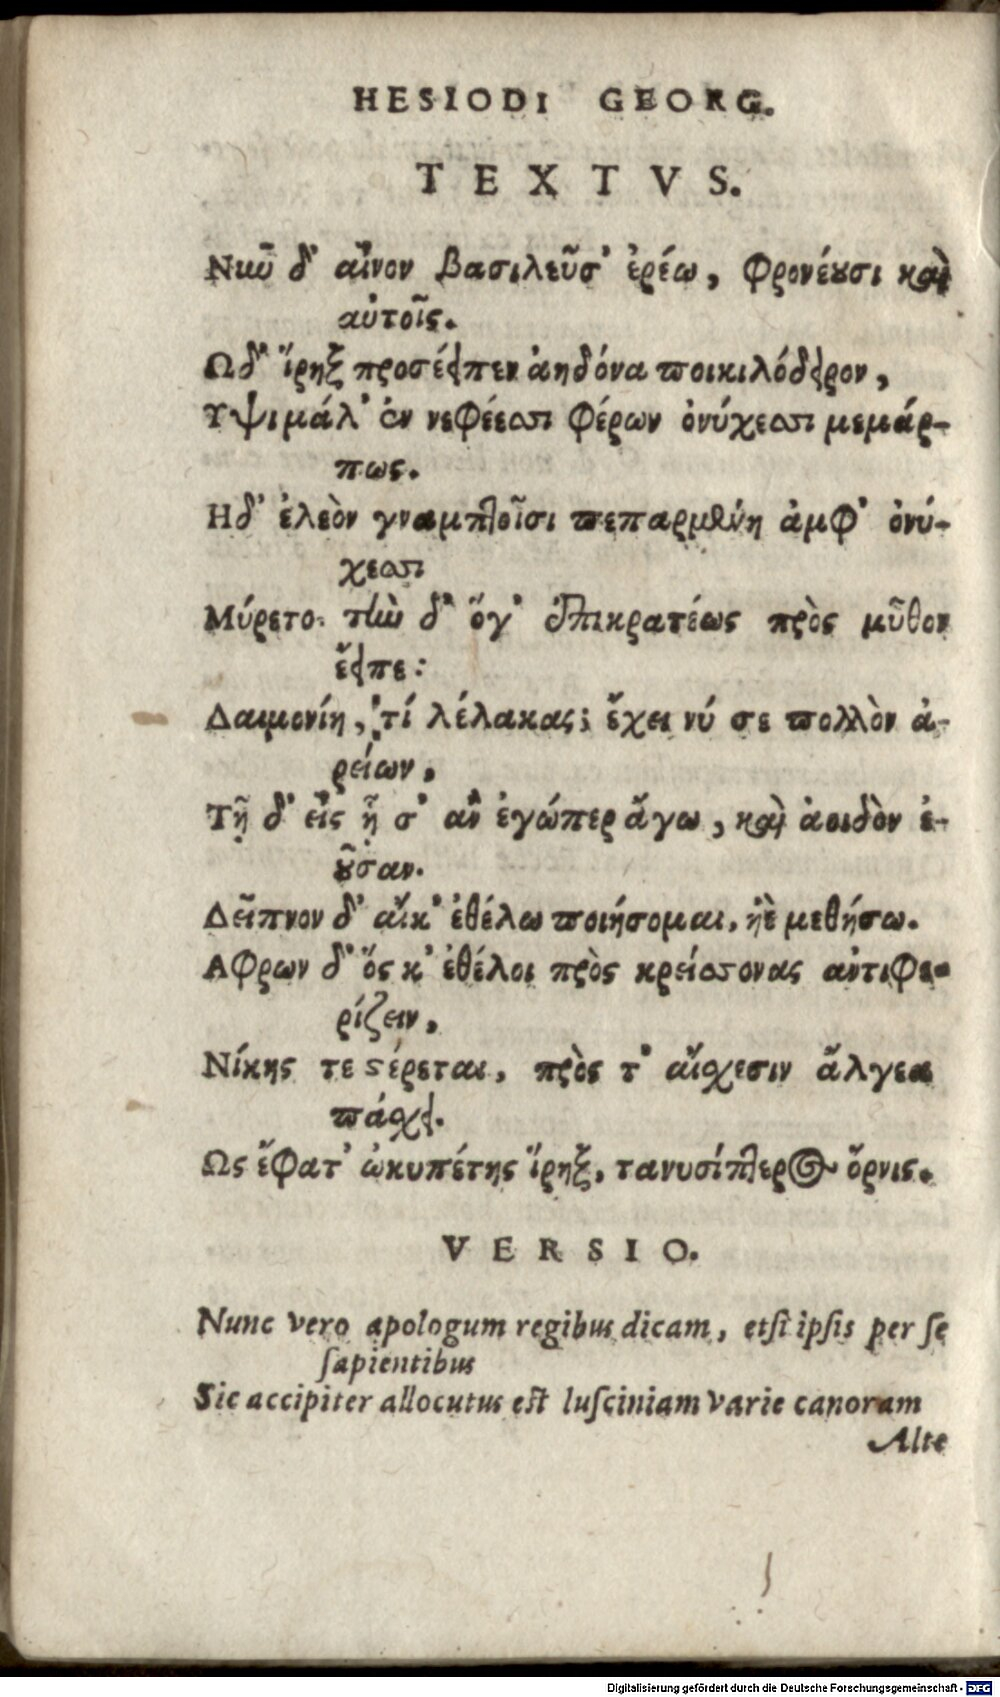 HESIODI GEORG.
TEXTVS.
Νῦν δ' αἶνον βασιλεῦσ' ἐρέω, φρονέουσι καὶ
αὐτοῖς.
Ωδ' ἴρηξ προσέειπεν ἀηδόνα ποικιλόδειρον,
Υψι μάλ' ἐν νεφέεσσι φέρων ὀνύχεσσι μεμάρ-
πως.
Ηδ' ἐλεὸν γναμπτοῖσι πεπαρμένη ἀμφ' ὀνύ-
χεσσι
Μύρετο· τὴν δ' ὅγ' ἐπικρατέως πρὸς μῦθον
ἔειπε:
Δαιμονίη, τί λέλακας; ἔχει νύ σε πολλὸν ἀ-
ρείων,
Τῇ δ' εἶς ᾗ σ' ἂν ἐγώπερ ἄγω, καὶ ἀοιδὸν ἐ-
οῦσαν.
Δεῖπνον δ' αἴκ' ἐθέλω ποιήσομαι, ἠὲ μεθήσω.
Αφρων δ' ὅς κ' ἐθέλοι πρὸς κρείσσονας ἀντιφε-
ρίζειν,
Νίκης τε στέρεται, πρὸς τ' αἴσχεσιν ἄλγεα
πάσχει.
Ως ἔφατ' ὠκυπέτης ἴρηξ, τανυσίπτερος ὄρνις.
VERSIO.
Nunc vero apologum regibus dicam, etſi ipſis per ſe
ſapientibus
Sic accipiter allocutus eſt luſciniam varie canoram
Alte
Digitalisierung gefördert durch die Deutsche Forschungsgemeinschaft - DFG